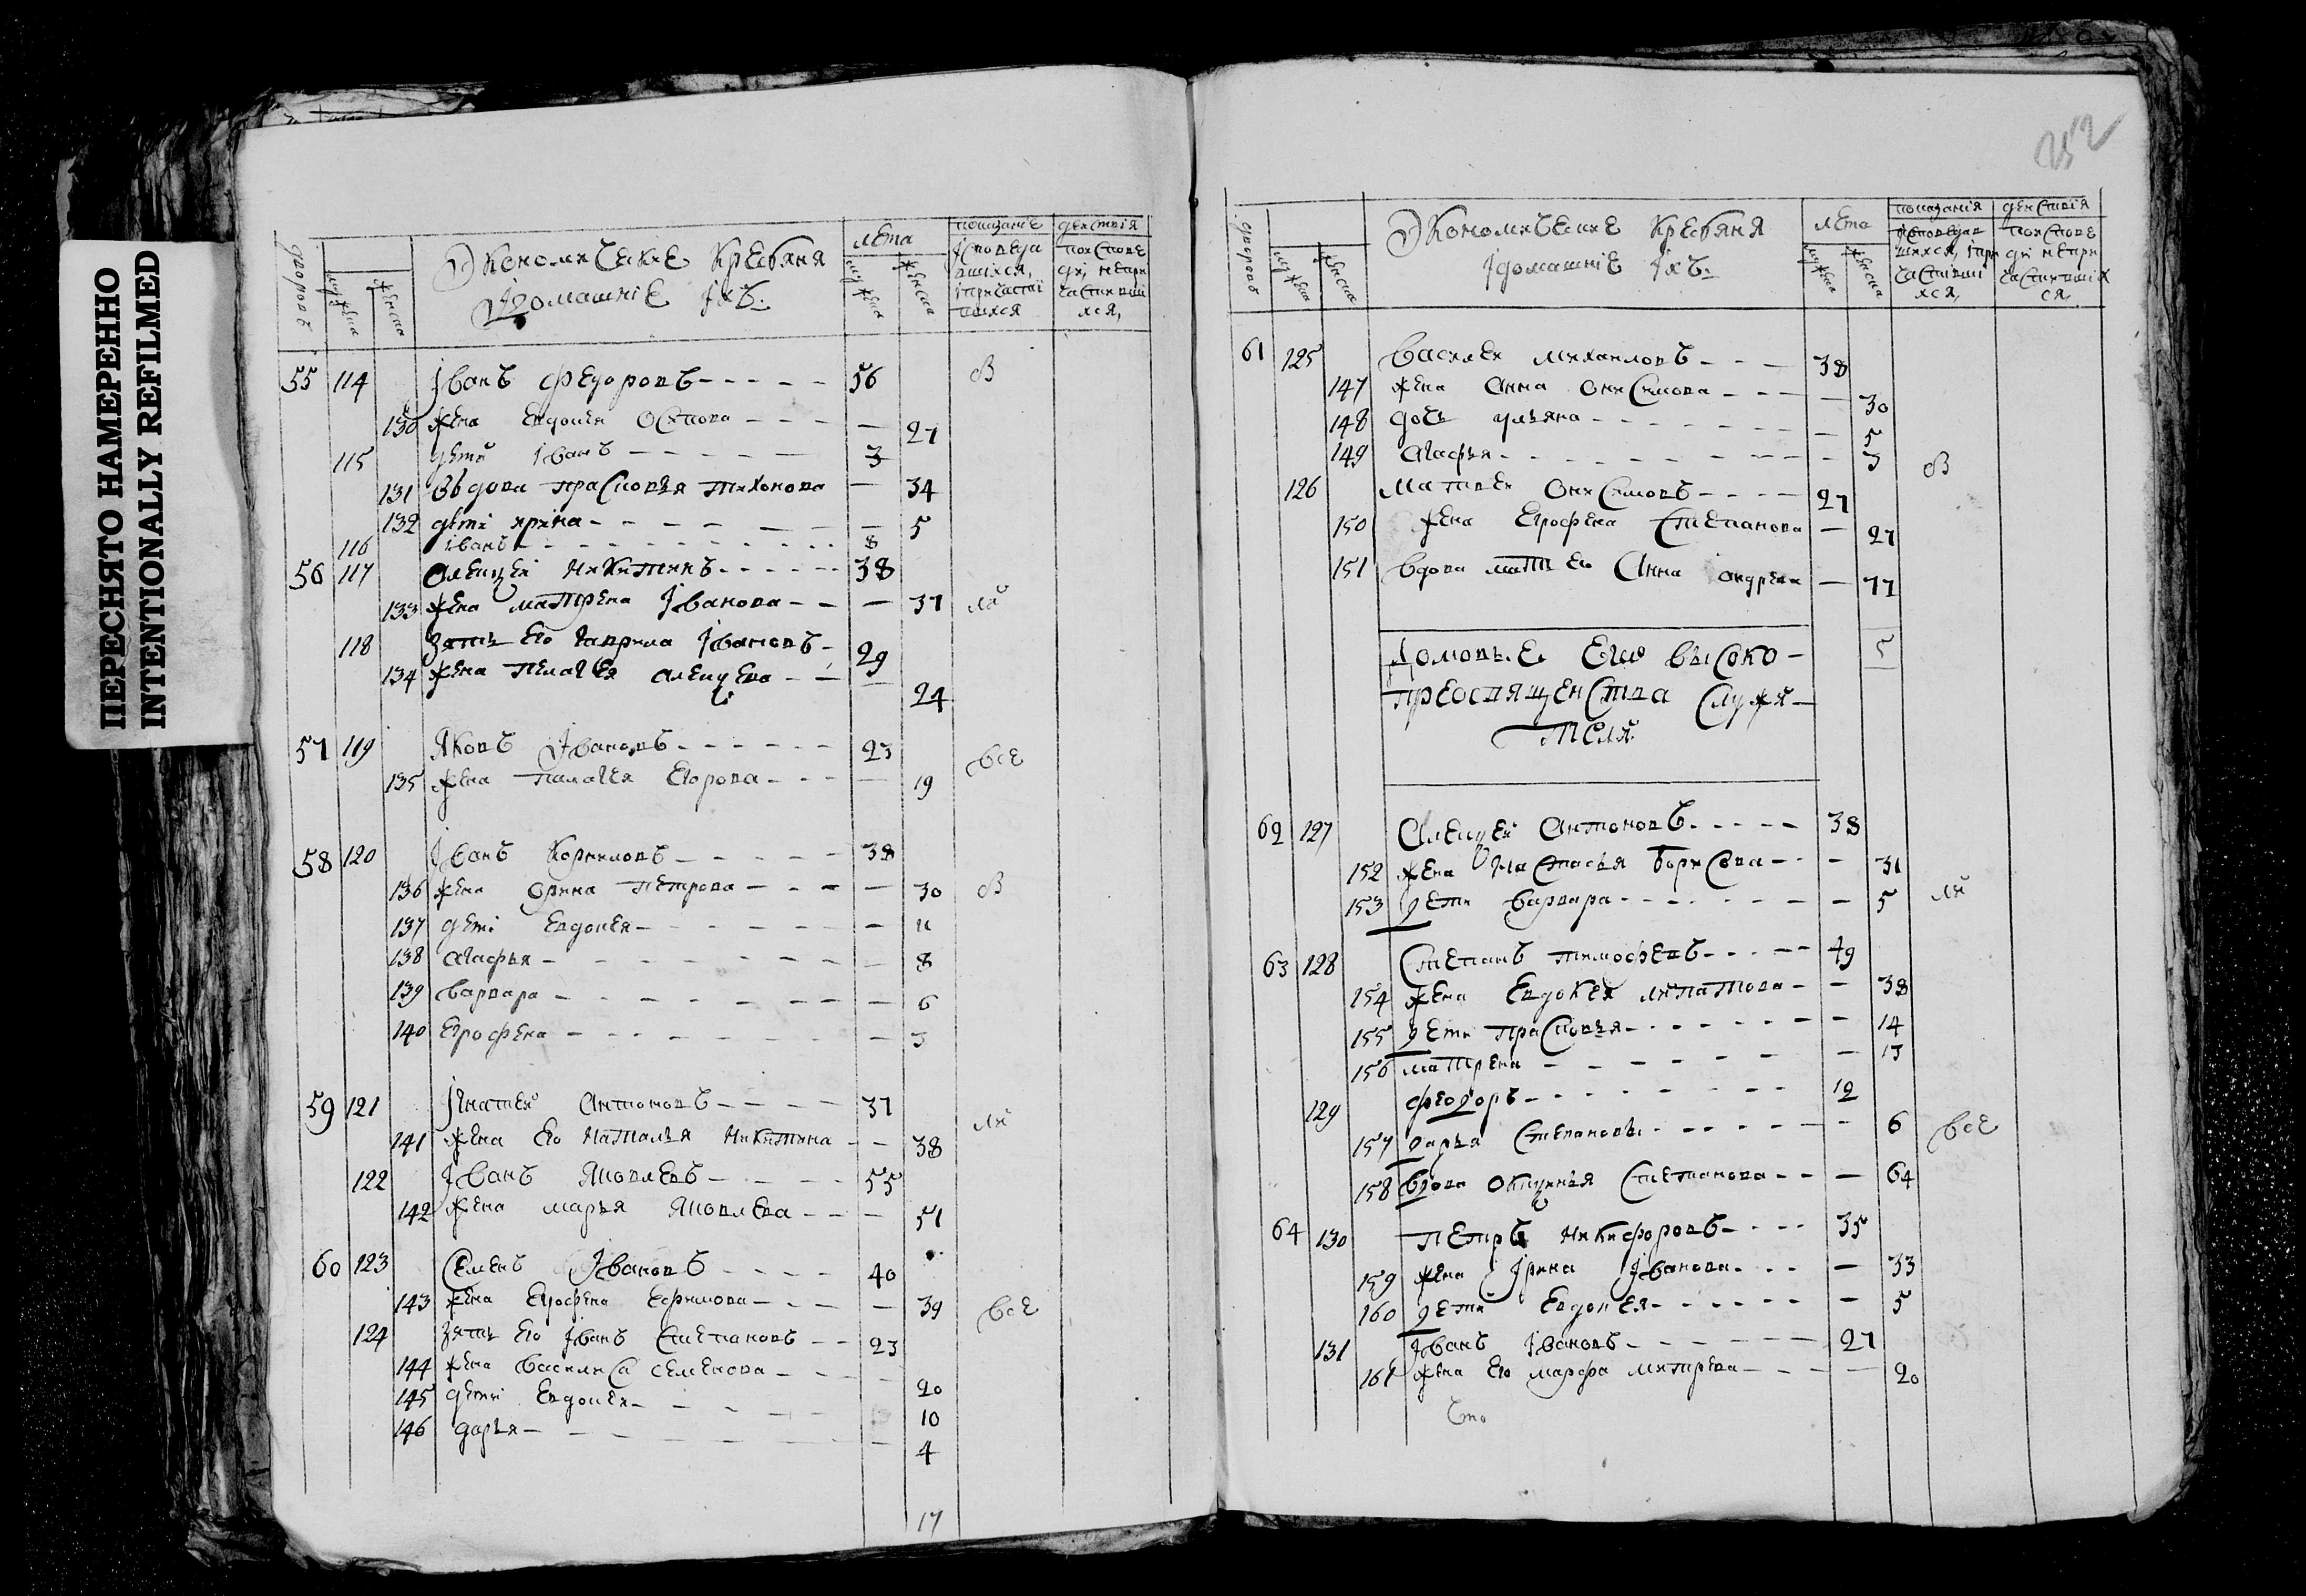 ПЕРЕСНЯТО НАМЕРЕННО
INTENTIONALLY REFILMED
дворовъ
мужеска
женска
Экономические крестьяня
і домашніе іхъ.
лета
мужеска
женска
показание
действия
55 114 Іванъ Федоровъ - - - - - 56
130 жена Евдокея Осипова - - - - 27
115 дети Іванъ - - - - - 3
131 Вдова Прасковья Тихонова - 34
132 дети Ирина - - - - - 5
116 Іванъ - - - - - 8
56 117 Алексей Никитинъ - - - - - 38
133 жена Матрена Іванова - - - 37
118 Зять его Гаврила Івановъ - 29
134 жена Пелагея Алексеева - - - 24
57 119 Яковъ Івановъ - - - - - 23 все
135 жена Палагея Егорова - - - - 19
58 120 Іванъ Корниловъ - - - - - 38
136 жена Орина Петрова - - - - 30
137 дети Евдокея - - - - - 11
138 Агафья - - - - - 8
139 Варвара - - - - - 6
140 Егрофена - - - - - 3
59 121 Ігнатей Антоновъ - - - - 37
141 жена его Наталья Никитина - - 38
122 Іванъ Яковлевъ - - - - - 55
142 жена Марья Яковлева - - - - 51
60 123 Семенъ Івановъ - - - - 40
143 жена Егрофена Ефимова - - - - 39 все
124 Зять его Іванъ Степановъ - - 23
144 жена Василиса Семенова - - - - 20
145 дети Евдокея - - - - - 10
146 Дарья - - - - - 4
17
252
дворовъ
мужеска
женска
Экономические крестьяня
і домашніе іхъ.
лета
мужеска
женска
показанія
действія
61 125 Василей Михаиловъ - - - 38
147 жена Анна Онисимова - - - - 30
148 дочь Ульяна - - - - - 5
149 Агафья - - - - - 3
126 Матвей Онисимовъ - - - - 27
150 жена Егрофена Степанова - 27
151 Вдова мать его Анна Андреева - 77
5
Домовые Его Высоко-
преосвященства служи-
тели
62 127 Алексей Антоновъ - - - - - 38
152 жена Настасья Борисова - - - 31
153 дети Варвара - - - - - 5
63 128 Степанъ Тимофеевъ - - - - - 49
154 жена Евдокея Липатова - - 38
155 дети Прасковья - - - - - 14
156 Матрена - - - - - 13
129 Феодоръ - - - - - 12
157 Дарья Степановы - - - - - 6 все
158 Вдова Окцинья Степанова - - - 64
64 130 Петръ Никифоровъ - - - - 35
159 жена Ірина Іванова - - - - 33
160 дети Евдокея - - - - - 5
131 Іванъ Івановъ - - - - - 27
161 жена его Марфа Митрева - - - - 20